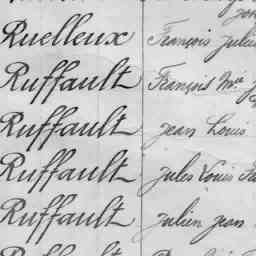 Ruelleux François Julie
Ruffault François Mie
Ruffault Jean Louis
Ruffault Jules Louis
Ruffault Julien Jean